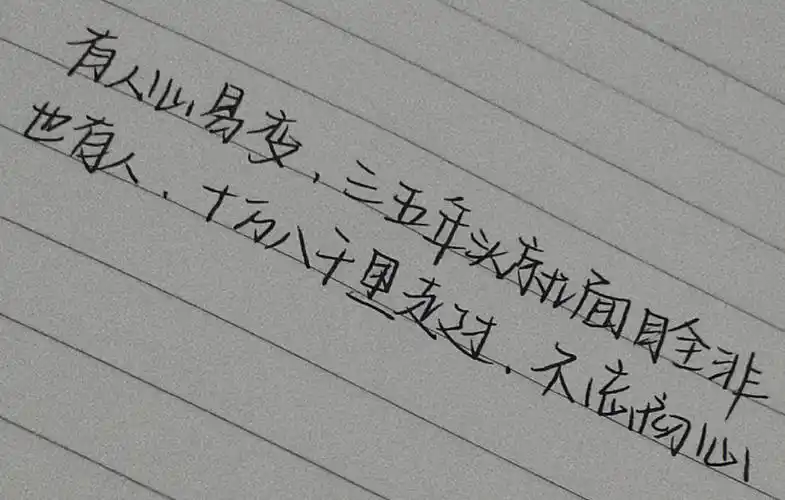 有人心易变，三五年头就面目全非
也有人，十万八千里走过，不忘初心